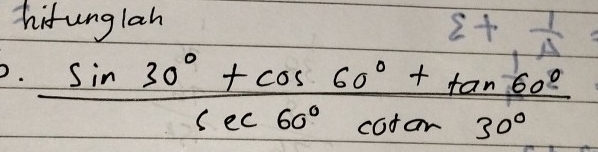 hitunglah
b. sin 30° + cos 60° + tan 60°
sec 60° cotan 30°